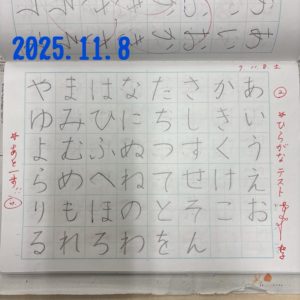 2025.11.8
7.11.8 土
ひらがな テスト
あいうえお
かきくけこ
さしすせそん
たちつてとを
なにぬねのわ
はひふへほろ
まみむめもれ
やゆよらりる